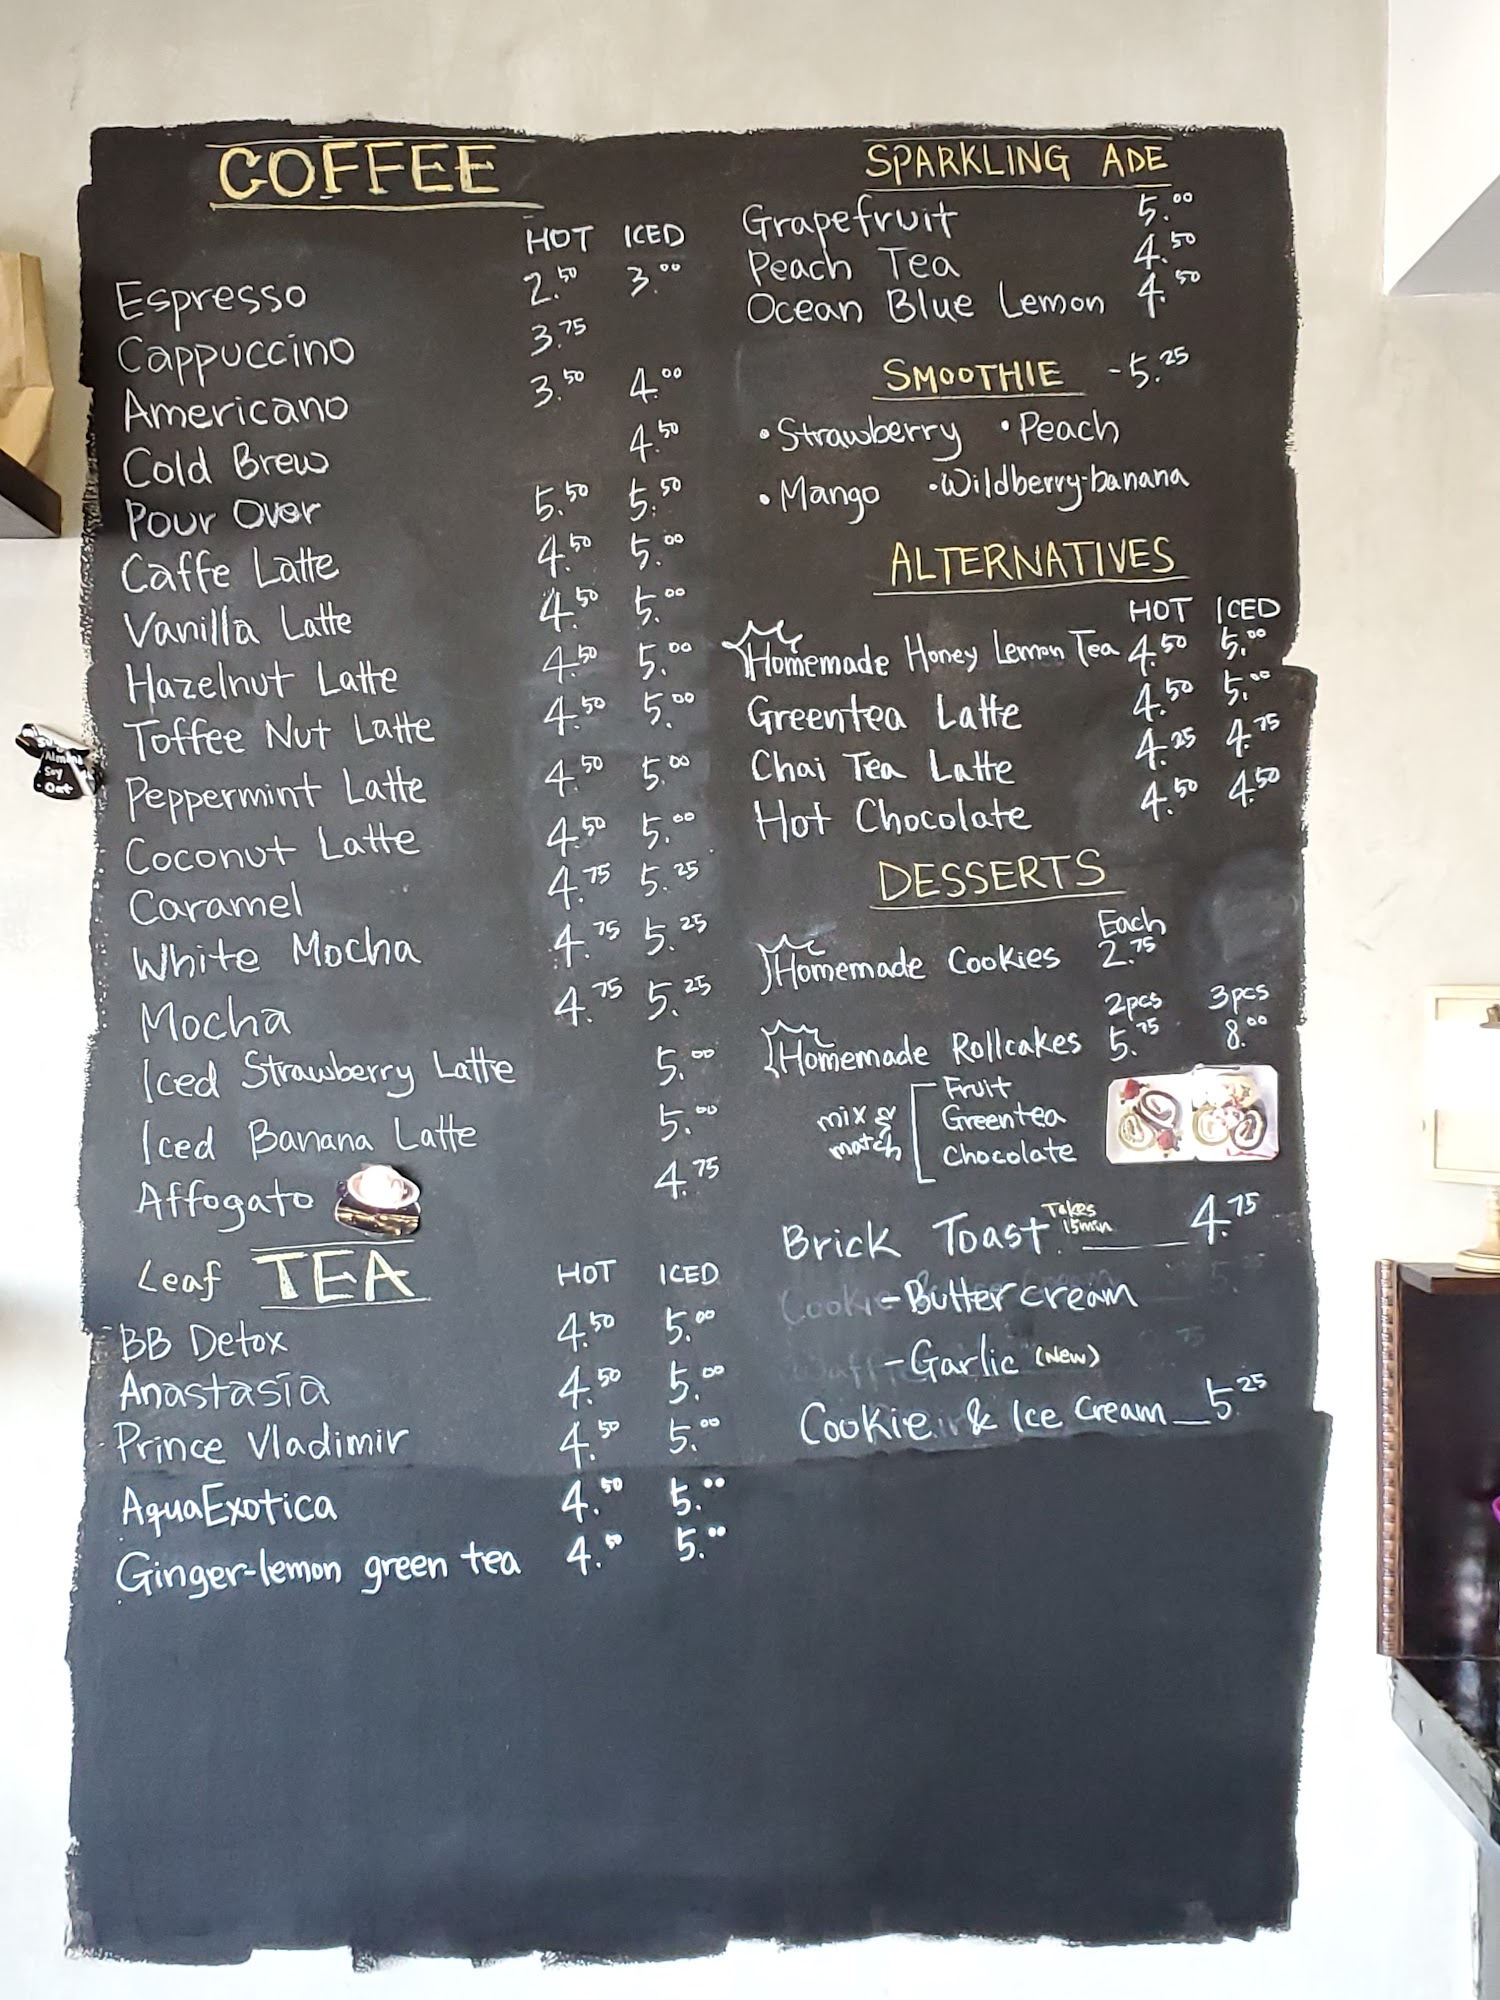 COFFEE
HOT ICED
Espresso 2.50 3.00
Cappuccino 3.75
Americano 3.50 4.00
Cold Brew 4.50
Pour Over 5.50 5.50
Caffe Latte 4.50 5.00
Vanilla Latte 4.50 5.00
Hazelnut Latte 4.50 5.00
Toffee Nut Latte 4.50 5.00
Peppermint Latte 4.50 5.00
Coconut Latte 4.50 5.00
Caramel 4.75 5.25
White Mocha 4.75 5.25
Mocha 4.75 5.25
Iced Strawberry Latte 5.00
Iced Banana Latte 5.00
Affogato 4.75
Leaf TEA HOT ICED
BB Detox 4.50 5.00
Anastasia 4.50 5.00
Prince Vladimir 4.50 5.00
AquaExotica 4.50 5.00
Ginger-lemon green tea 4.50 5.00
SPARKLING ADE
Grapefruit 5.00
Peach Tea 4.50
Ocean Blue Lemon 4.50
SMOOTHIE -5.25
• Strawberry • Peach
• Mango • Wildberry-banana
ALTERNATIVES
HOT ICED
Homemade Honey Lemon Tea 4.50 5.00
Greentea Latte 4.50 5.00
Chai Tea Latte 4.25 4.75
Hot Chocolate 4.50 4.50
DESSERTS
Each
Homemade Cookies 2.75
2pcs 3pcs
Homemade Rollcakes 5.75 8.00
mix & match
Fruit
Greentea
Chocolate
Brick Toast Takes 15min 4.75
- Butter cream
- Garlic (New)
Cookie & Ice Cream 5.25
Almond
Soy
Oat